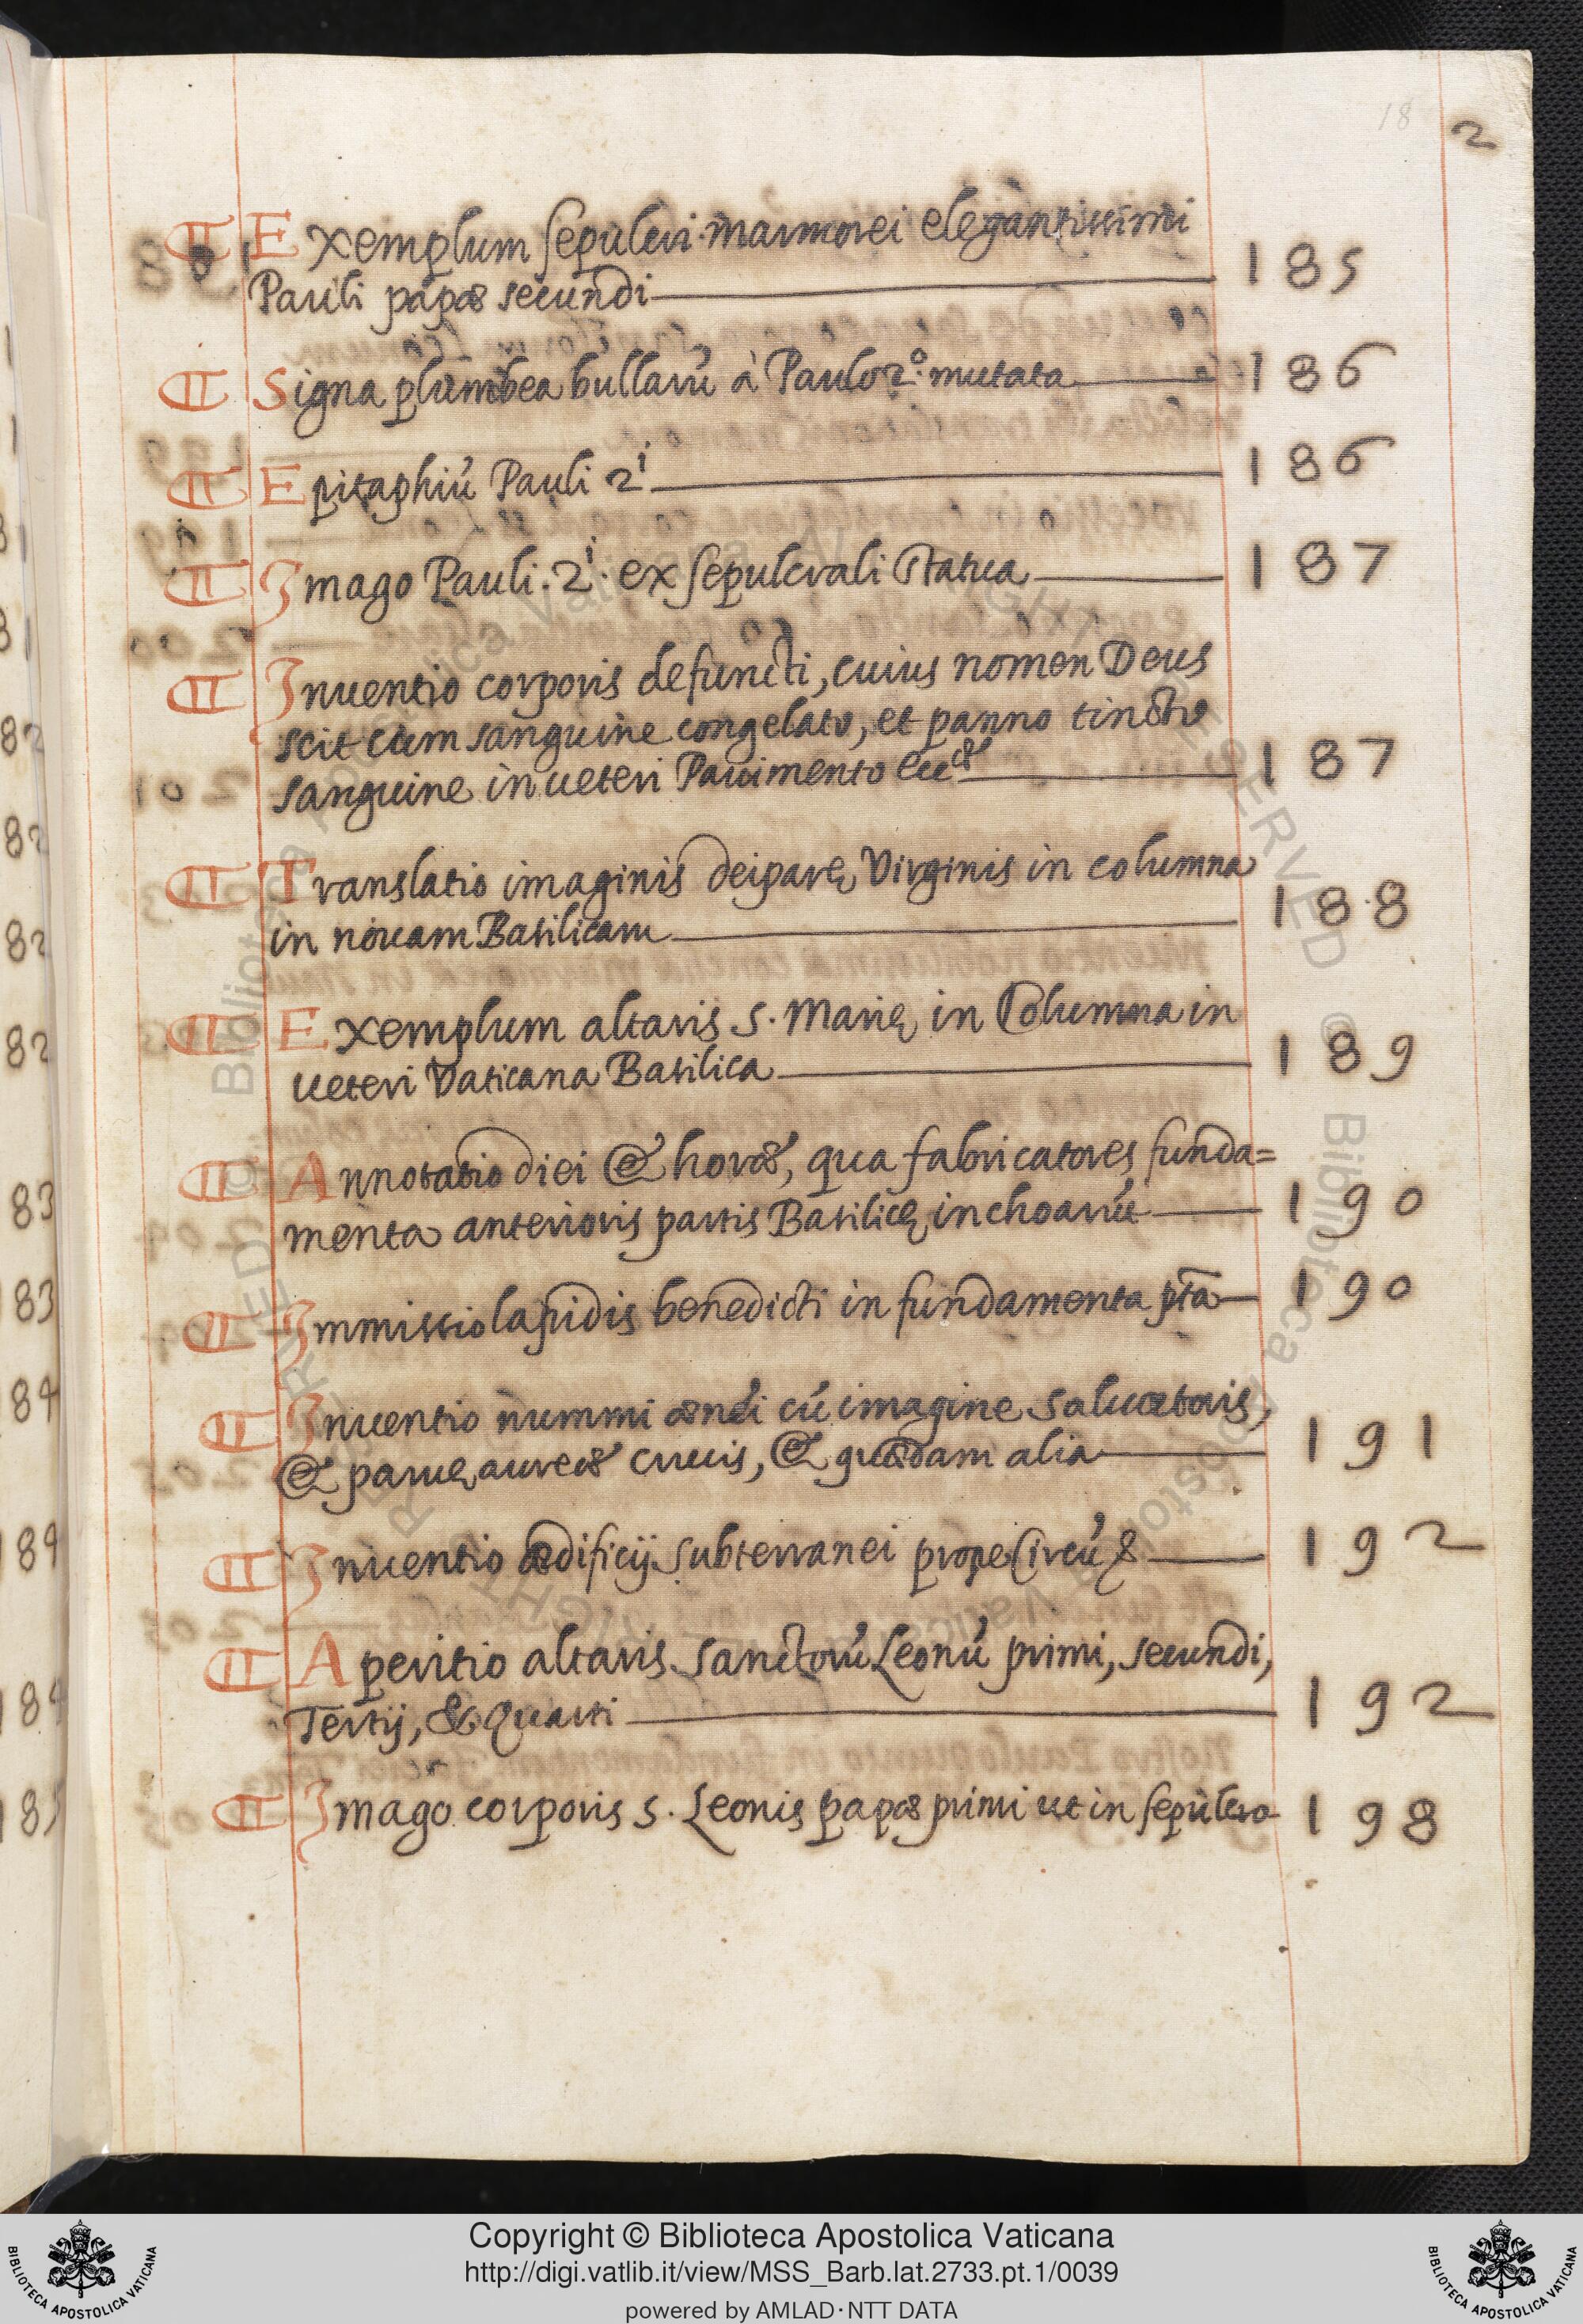 18 2
¶ Exemplum sepulcri marmorei elegantissimi
Pauli papæ secundi 185
¶ Signa plumbea bullarú à Paulo 2º. mutata 186
¶ Epitaphiú Pauli 2i 186
¶ Imago Pauli. 2i. ex sepulcrali statua 187
¶ Inuentio corporis defuncti, cuius nomen Deus
scit cum sanguine congelato, et panno tincto
sanguine in ueteri Pauimento 187
¶ Translatio imaginis deiparę Virginis in columna
in nouam Basilicam 188
¶ Exemplum altaris S. Marię in Columna in
ueteri Vaticana Basilica 189
¶ Annotatio diei & horæ, qua fabricatores funda=
menta anterioris partis Basilicę inchoarút 190
¶ Immissio lapidis benedicti in fundamenta pta 190
¶ Inuentio nummi ænei cú imagine saluatoris,
& paruę aureæ crucis, & quædam alia 191
¶ Inuentio ædificij subterranei prope Circú 192
¶ Aperitio altaris sanctorú Leonú primi, secundi,
Tertij, & Quarti 192
¶ Imago corporis S. Leonis papæ primi ut in sepulcro 198
Copyright © Biblioteca Apostolica Vaticana
http://digi.vatlib.it/view/MSS_Barb.lat.2733.pt.1/0039
powered by AMLAD·NTT DATA
BIBLIOTECA APOSTOLICA VATICANA
BIBLIOTECA APOSTOLICA VATICANA